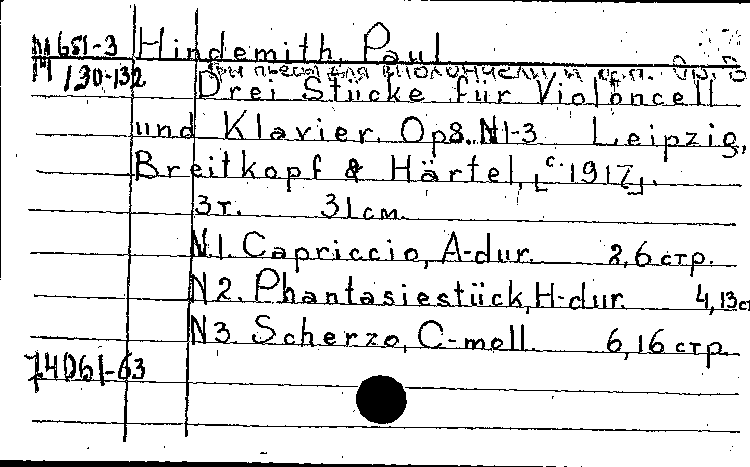 М 651-3 Hindemith, Paul
М 130-132 Три пьесы для виолончели и ф.п. Op. 8
Drei Stücke für Violoncell
und Klavier. Op 8. N1-3 Leipzig,
Breitkopf & Härtel, [c. 1917].
3т. 31см.
N1. Capriccio, A-dur. 2,6 стр.
N2. Phantasiestück, H-dur. 4,13ст
N3. Scherzo, C-moll. 6,16 стр
74061-63